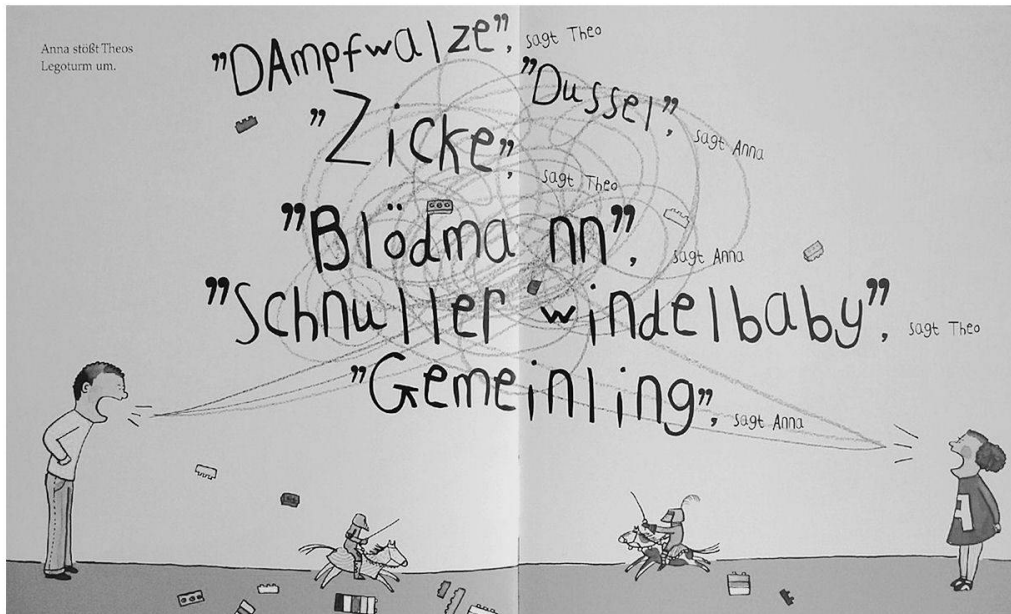 Anna stößt Theos
Legoturm um.
”DAmpfwalze”, sagt Theo
”Dussel”, sagt Anna
”Zicke”, sagt Theo
”Blödmann”, sagt Anna
”Schnullerwindelbaby”, sagt Theo
”Gemeinling”, sagt Anna